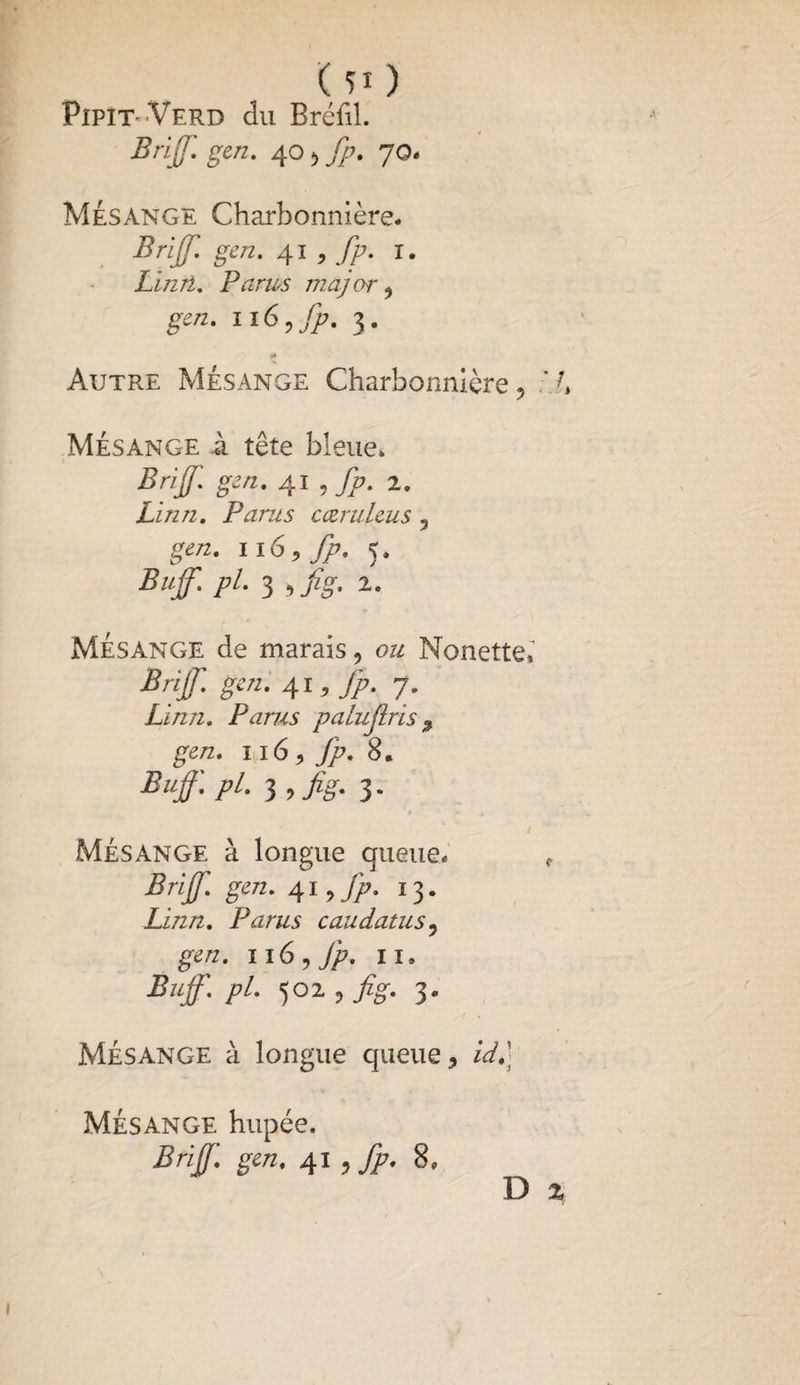 ( 51 )
PIPIT-VERD du Bréſil.
Briſſ. gen. 40, ſp. 70.
MÉSANGE Charbonnière.
Briſſ. gen. 41, ſp. 1.
Linn. Parus major,
gen. 116, ſp. 3.
AUTRE MÉSANGE Charbonnière,
MÉSANGE à tête bleue.
Briſſ. gen. 41, ſp. 2.
Linn. Parus cæruleus,
gen. 116, ſp. 5.
Buff. pl. 3, fig. 2.
MÉSANGE de marais, ou Nonette.
Briſſ. gen. 41, ſp. 7.
Linn. Parus paluſtris,
gen. 116, ſp. 8.
Buff. pl. 3, fig. 3.
MÉSANGE à longue queue.
Briſſ. gen. 41, ſp. 13.
Linn. Parus caudatus,
gen. 116, ſp. 11.
Buff. pl. 502, fig. 3.
MÉSANGE à longue queue, id.
MÉSANGE hupée.
Briſſ. gen. 41, ſp. 8,
D 2